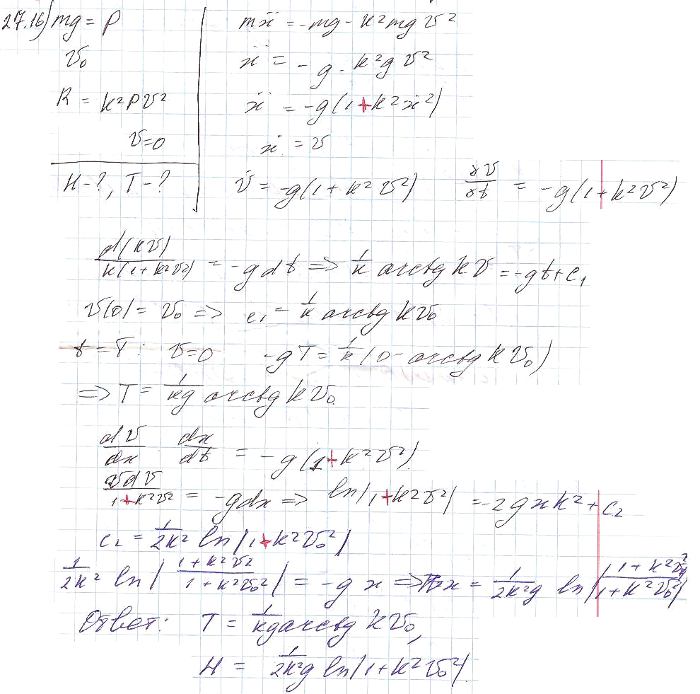 27.16) mg = P
v₀
R = k²Pv²
v=0
H-?, T-?
mẍ = -mg - k²mg v²
ẍ = -g - k²g v²
ẍ = -g(1+k²ẋ²)
ẋ = v
v̇ = -g(1+k²v²)    dv/dt = -g(1+k²v²)
d(kv)/k(1+k²v²) = -gdt => 1/k arctg kv = -gt+c₁
v(0) = v₀ => c₁ = 1/k arctg kv₀
t=T: v=0    -gT = 1/k (0 - arctg kv₀)
=> T = 1/kg arctg kv₀
dv/dx dx/dt = -g(1+k²v²)
vdv/1+k²v² = -gdx => ln|1+k²v²| = -2gxk² + c₂
c₂ = 1/2k² ln|1+k²v₀²|
1/2k² ln| 1+k²v²/1+k²v₀² | = -gx => x = 1/2k²g ln| 1+k²v₀²/1+k²v₀² |
Ответ: T = 1/kg arctg kv₀,
H = 1/2k²g ln|1+k²v₀²|